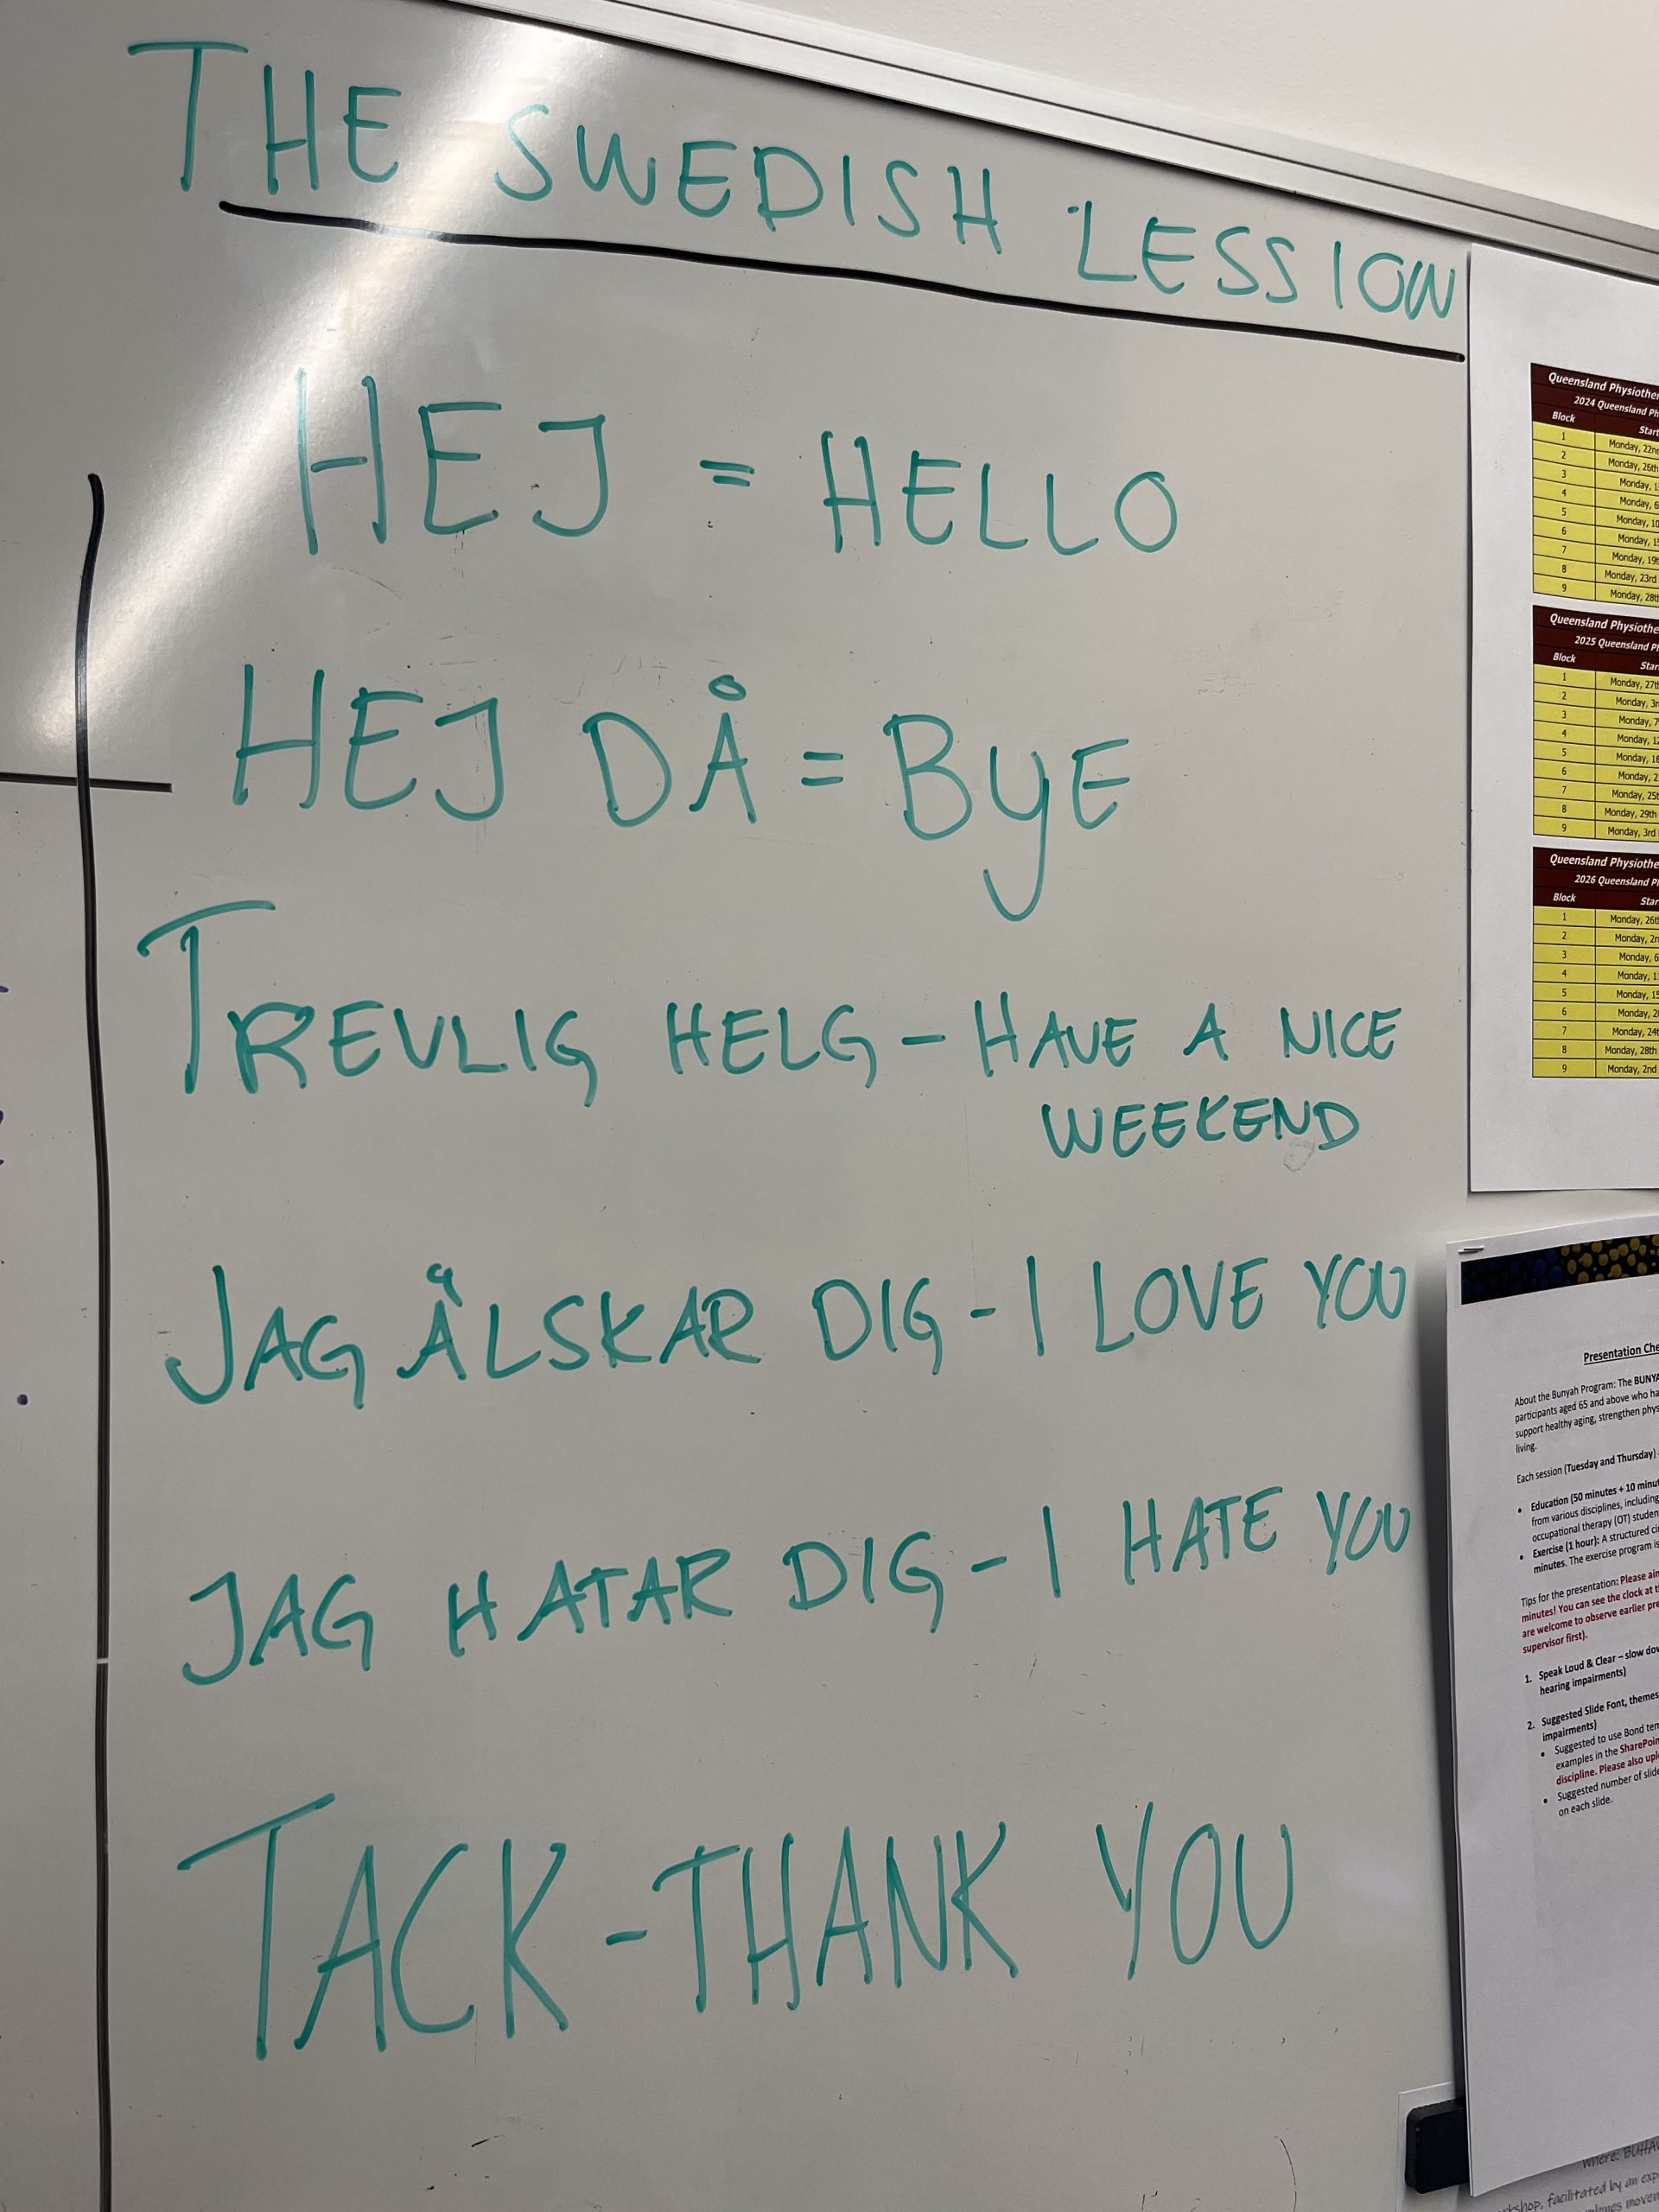 THE SWEDISH LESSION
HEJ = HELLO
HEJ DÅ = BYE
TREVLIG HELG - HAVE A NICE
WEEKEND
JAG ÄLSKAR DIG - I LOVE YOU
JAG HATAR DIG - I HATE YOU
TACK - THANK YOU
Queensland
2024 Queensland
Block
1 Monday,
2 Monday, 26th
3 Monday,
4 Monday,
5 Monday,
6 Monday,
7 Monday,
8 Monday, 23rd
9 Monday,
Queensland
2025 Queensland
Block
1 Monday,
2 Monday,
3 Monday,
4 Monday,
5 Monday,
6 Monday,
7 Monday,
8 Monday, 29th
9 Monday, 3rd
Queensland
2026 Queensland
Block
1 Monday,
2 Monday,
3 Monday,
4 Monday,
5 Monday,
6 Monday,
7 Monday,
8 Monday, 28th
9 Monday, 2nd
Presentation
About the Bunyah Program: The
participants aged 65 and above who
support healthy aging, strengthen
living.
Each session (Tuesday and Thursday)
• Education (50 minutes + 10
from various disciplines, including
occupational therapy (OT)
• Exercise (1 hour): A structured
minutes. The exercise program is
Tips for the presentation: Please
minutes! You can see the clock at
are welcome to observe earlier
supervisor first).
1. Speak Loud & Clear – slow
hearing impairments)
2. Suggested Slide Font, themes
impairments)
• Suggested to use Bond
examples in the
discipline. Please also
• Suggested number of
on each slide.
where:
facilitated by an